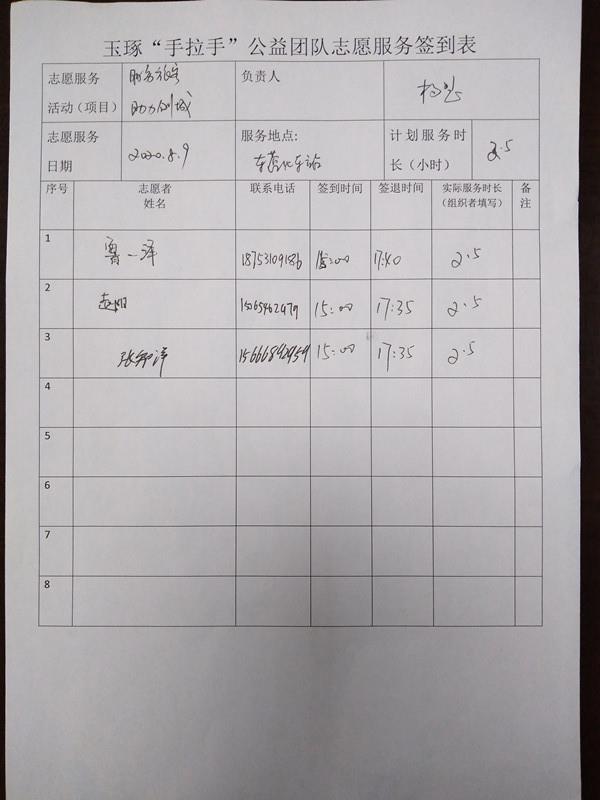 玉琢“手拉手”公益团队志愿服务签到表
志愿服务 服务旅客 负责人
活动（项目） 助力创城
志愿服务 服务地点： 计划服务时
日期 2020.8.9 东营火车站 长（小时） 2.5
序号 志愿者 联系电话 签到时间 签退时间 实际服务时长 备
姓名 （组织者填写） 注
1 鲁一泽 18753109186 15:00 17:40 2.5
2 赵阳 15065462479 15:00 17:35 2.5
3 15:00 17:35 2.5
4
5
6
7
8